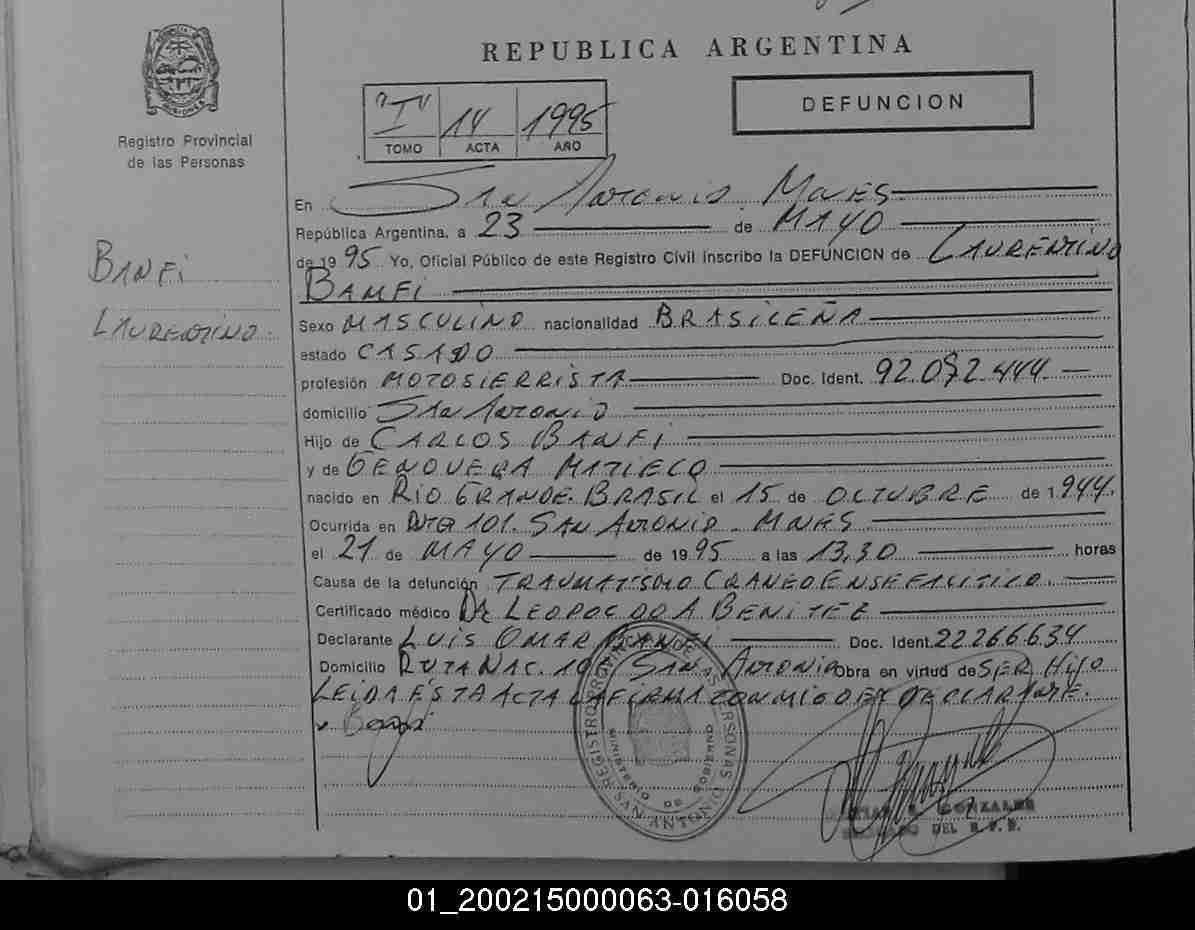 REPUBLICA ARGENTINA
Registro Provincial
de las Personas
"I" 14 1995
TOMO ACTA AÑO
DEFUNCION
BANFI
LAURENTINO
En SAN ANTONIO. MNES
República Argentina, a 23 de MAYO
de 1995 Yo, Oficial Público de este Registro Civil inscribo la DEFUNCION de LAURENTINO
BANFI
Sexo MASCULINO nacionalidad BRASILEÑA
estado CASADO
profesión MOTOSIERRISTA Doc. Ident. 92.072.444
domicilio SAN ANTONIO
Hijo de CARLOS BANFI
y de GENOVEBA
nacido en RIO GRANDE. BRASIL el 15 de OCTUBRE de 1.944.
Ocurrida en RUTA 101. SAN ANTONIO - MNES
el 21 de MAYO de 1995 a las 13,30 horas
Causa de la defunción TRAUMATISMO CRANEO ENSEFALITICO.
Certificado médico Dr LEOPOLDO A BENITEZ
Declarante LUIS OMAR BANFI Doc. Ident. 22266.634
Domicilio RUTA NAC. 101 SAN ANTONIO Obra en virtud de SER HIJO
LEIDA ESTA ACTA LA FIRMA CONMIGO EL DECLARANTE.
REGISTRO PROVINCIAL DE LAS PERSONAS
MINISTERIO DE GOBIERNO
SAN ANTONIO
GONZALEZ
DEL R.P.P.
01_200215000063-016058